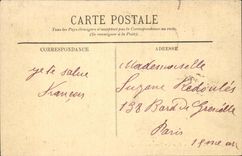 CARTE POSTALE
Tous les Pays étrangers n'acceptent pas la Correspondance au recto.
(Se renseigner à la Poste).
CORRESPONDANCE
ADRESSE
je te salue
François
Mademoiselle
Suzane Redoutés
138 Bard de Grenelle
Paris
15eme arr